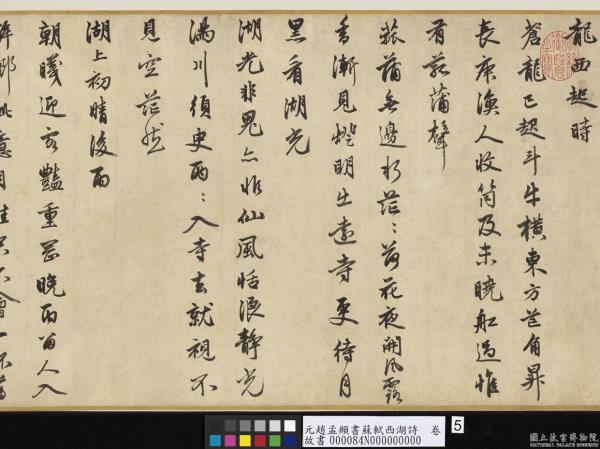 龍西起時
蒼龍已起斗牛橫東方芒角昇
長庚漁人收筒及未曉船過惟
有菰蒲聲
菰蒲無邊水茫〻荷花夜開風露
香漸見燈明出遠寺更待月
黑看湖光
湖光非鬼亦非仙風恬浪靜光
滿川須臾兩〻入寺去就視不
見空茫然
湖上初晴後雨
朝曦迎客豔重岡晚雨留人入
醉鄉此意自佳君不會一杯當
元趙孟頫書蘇軾西湖詩 卷
故書 000084N000000000
5
國立故宮博物院